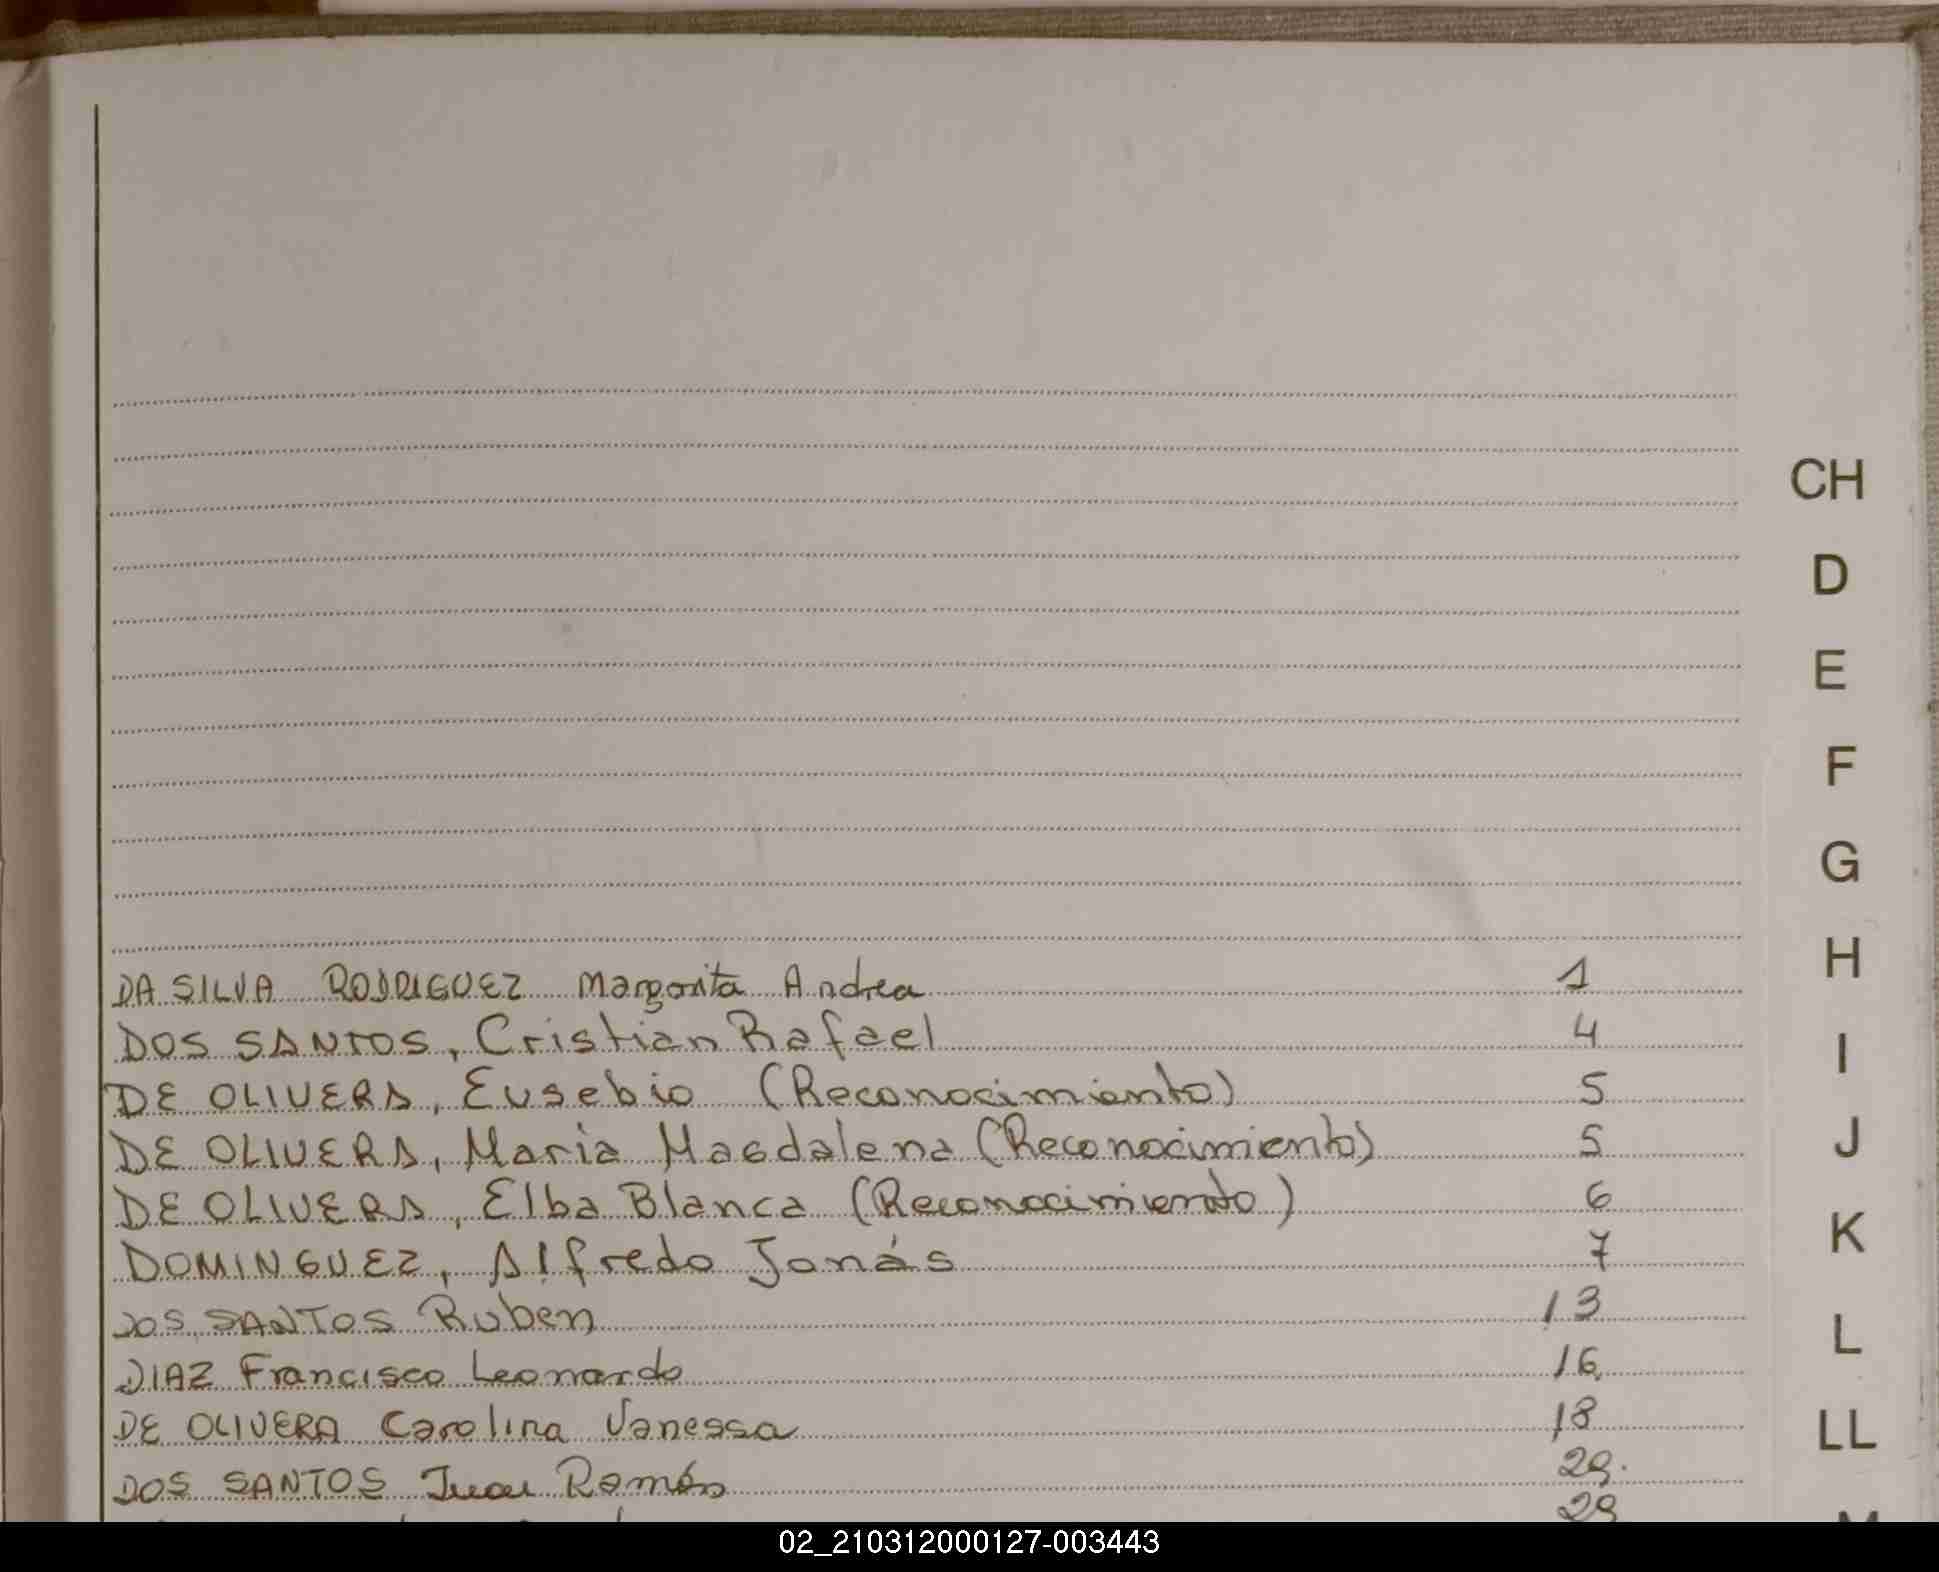 DA SILVA RODRIGUEZ Margarita Andrea 1
DOS SANTOS, Cristian Rafael 4
DE OLIVERA, Eusebio (Reconocimiento) 5
DE OLIVERA, Maria Magdalena (Reconocimiento) 5
DE OLIVERA, Elba Blanca (Reconocimiento) 6
DOMINGUEZ, Alfredo Jonás 7
DOS SANTOS Ruben 13
DIAZ Francisco Leonardo 16
DE OLIVERA Carolina Vanessa 18
DOS SANTOS Juan Ramón 29.
29
CH
D
E
F
G
H
I
J
K
L
LL
M
02_210312000127-003443